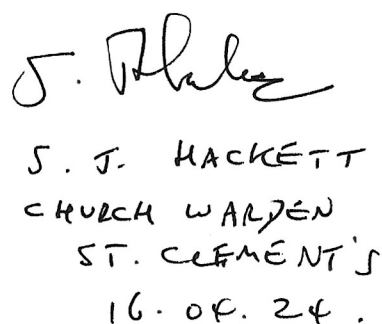 S. J. HACKETT
CHURCH WARDEN
ST. CLEMENT'S
16. 04. 24.